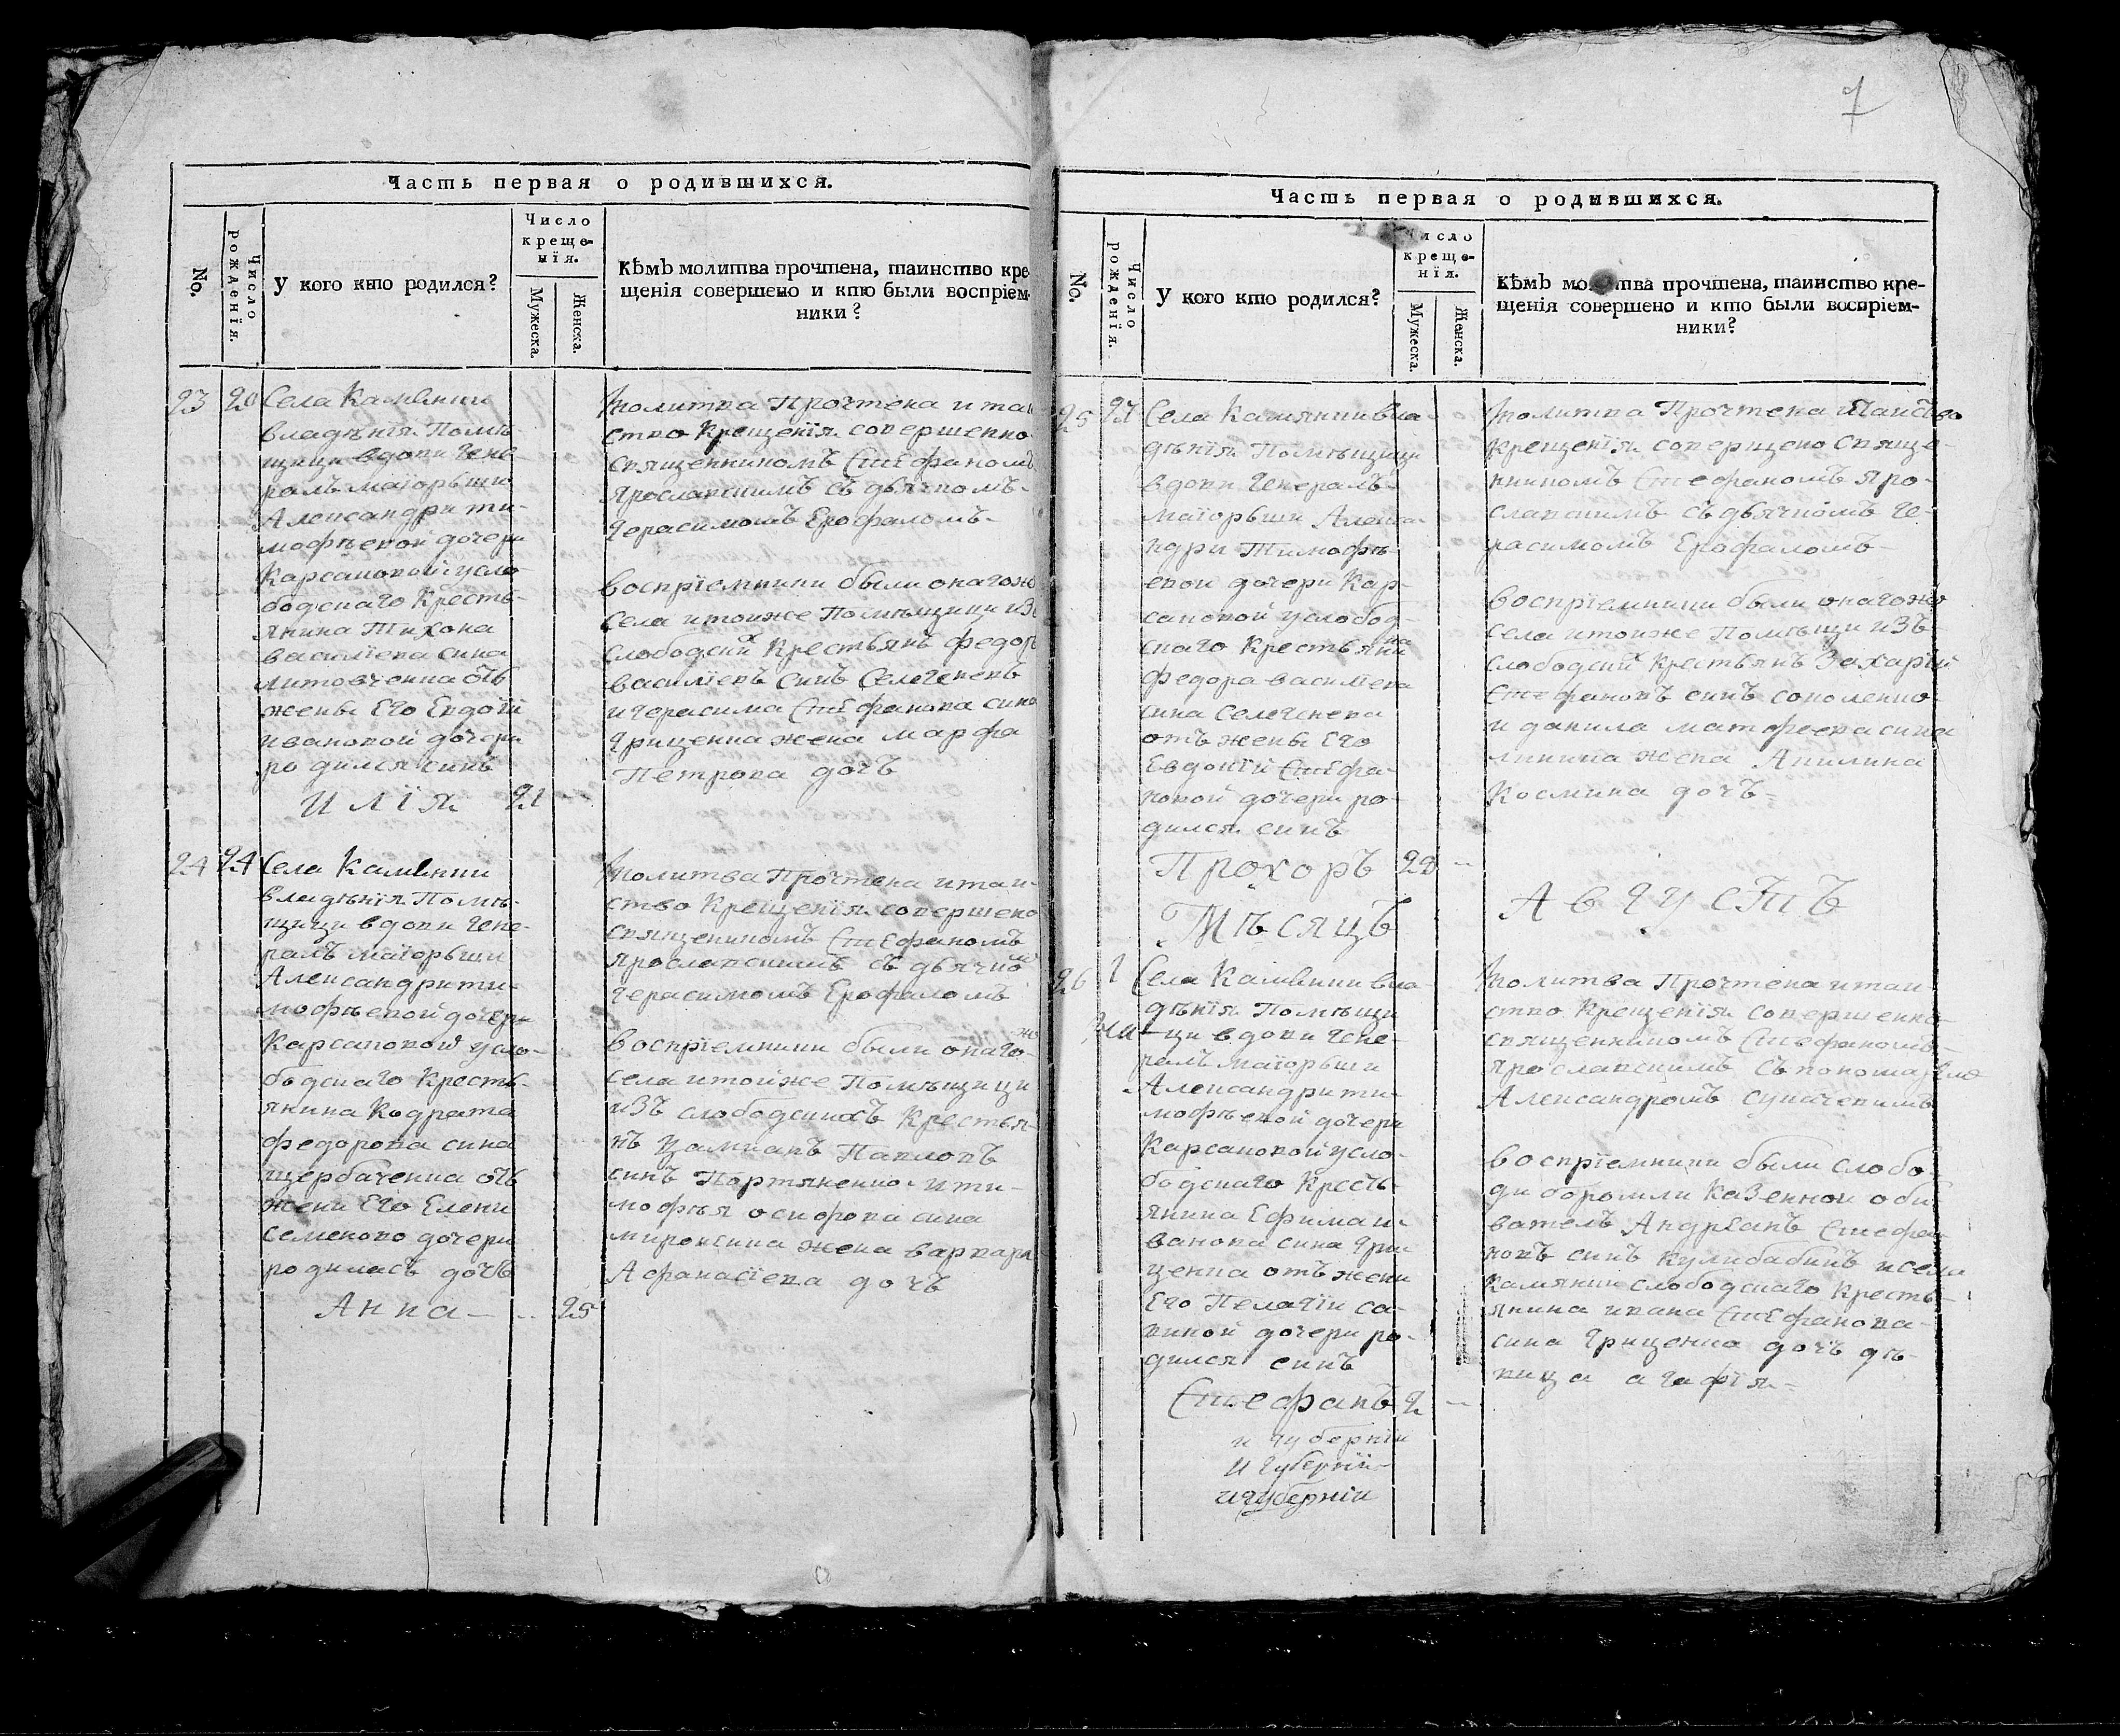 Часть первая о родившихся.
No.
Число рожденїя.
У кого кто родился?
Число
креще-
нїя.
Мужеска.
Женска.
Кѣмъ молитва прочтена, таинство кре-
щенія совершено и кто были воспріем-
ники?
23 20 Села Камянки
владѣнїя Помѣ-
щици вдови Гене-
ралъ маїорьши
Александри ти-
мофѣевой дочери
Карсаковой усло-
бодскаго Кресть-
янина Тихона
василїева сина
литовченка отъ
жены Его Евдокїи
ивановой дочери
родился синъ
Илїя 21
молитва Прочтена и таи-
ство Крещенїя совершенно
священникомъ Стефаномъ
Ярославскимъ съ дьячкомъ
Герасимомъ Ерофаломъ
воспрїемники были онагожъ
села и тоиже Помѣщици изъ
слободскихъ Крестьянъ федоръ
василїевъ синъ Селегеневъ
и герасима Стефанова сина
Гриценка жена марфа
Петрова дочъ
24 24 Села Камянки
владѣнїя Помѣ-
щици вдови Гене-
ралъ маїорьши
Александри ти-
мофѣевой дочери
Карсаковой усло-
бодскаго Кресть-
янина Кодрата
федорова сина
щербаченка отъ
жени Его Елени
Семеново дочери
родиласъ дочъ
Анна 25
молитва Прочтена и таи-
ство Крещенїя совершено
священикомъ Стефаномъ
Ярославскимъ съ дьячкомъ
Герасимомъ Ерофаломъ
воспрїемники были онагожъ
села и тойже Помѣщици
изъ слободскихъ Крестья-
нъ Павловъ
синъ Портяненко и ти-
мофѣя осифова сина
жена варвара
Афанасїева дочъ
7
Часть первая о родившихся.
No.
Число рожденїя.
У кого кто родился?
Число
креще-
нїя.
Мужеска.
Женска.
Кѣмъ молитва прочтена, таинство кре-
щенія совершено и кто были воспріем-
ники?
25 27 Села Камянки вла-
дѣнїя Помѣщици
вдови Генералъ
маїорьши Алекса-
ндри Тимофѣ-
евой дочери Кар-
саковой услобод-
скаго Крестьянина
федора василїева
сина Селегенева
отъ жены Его
Евдокїи Стефа-
новой дочери ро-
дился синъ
Прохоръ 28
молитва Прочтена и таиство
Крещенїя соверщено Свяще-
нникомъ Стефаномъ Яро-
славскимъ съ дьячкомъ Ге-
расимомъ Ерофаломъ
воспрїемники были онагожъ
села и тоиже Помѣщи изъ
слободскихъ Крестьянъ Захарїй
Стефановъ синъ соколенко
и данила матфеева сина
жена Акилина
Космина дочъ
Мѣсяцъ Августъ
26 1 Села Камянки вла-
дѣнїя Помѣщи
ци вдови Гене-
ралъ маїорьши
Александри ти-
мофѣевой дочери
Карсаковой усло-
бодскаго Кресть-
янина Ефима и-
ванова сина Гри-
ценка отъ жени
Его Пелагїи са-
виной дочери ро-
дился синъ
Стефанъ 2
и губернїи
и губернїи
и губернїи
молитва Прочтена и таи-
ство Крещенїя Совершенно
священникомъ Стефаномъ
Ярославскимъ съ пономаремъ
Александромъ
воспрїемники были слобо-
ди боромли Казенной оби-
ватель Андреанъ Стефа-
новъ синъ Кулибабинъ и села
Камянки слободскаго Кресть-
янина ивана Стефанова
сина Гриценка дочъ дѣ-
вица агафїя